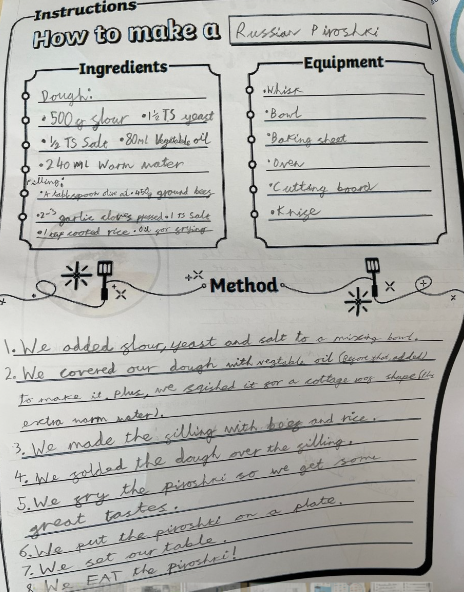 Instructions
How to make a Russian Piroshki
Ingredients
Dough:
• 500g flour • 1½ TS yeast
• ½ TS Salt • 80ml Vegetable oil
• 240ml Warm water
Filling:
• 450g ground beef
• 2-3 garlic cloves pressed • 1 TS Salt
• 1 cup cooked rice • Oil for frying
Equipment
• Whisk
• Bowl
• Baking sheet
• Oven
• Cutting board
• Knife
Method
1. We added flour, yeast and salt to a mixing bowl.
2. We covered our dough with vegtable oil
to make it, plus, we squished it for a cottage shape
extra warm water).
3. We made the filling with beef and rice.
4. We folded the dough over the filling.
5. We fry the piroshki so we get some
great tastes.
6. We put the piroshki on a plate.
7. We set our table.
8. We EAT the piroshki!